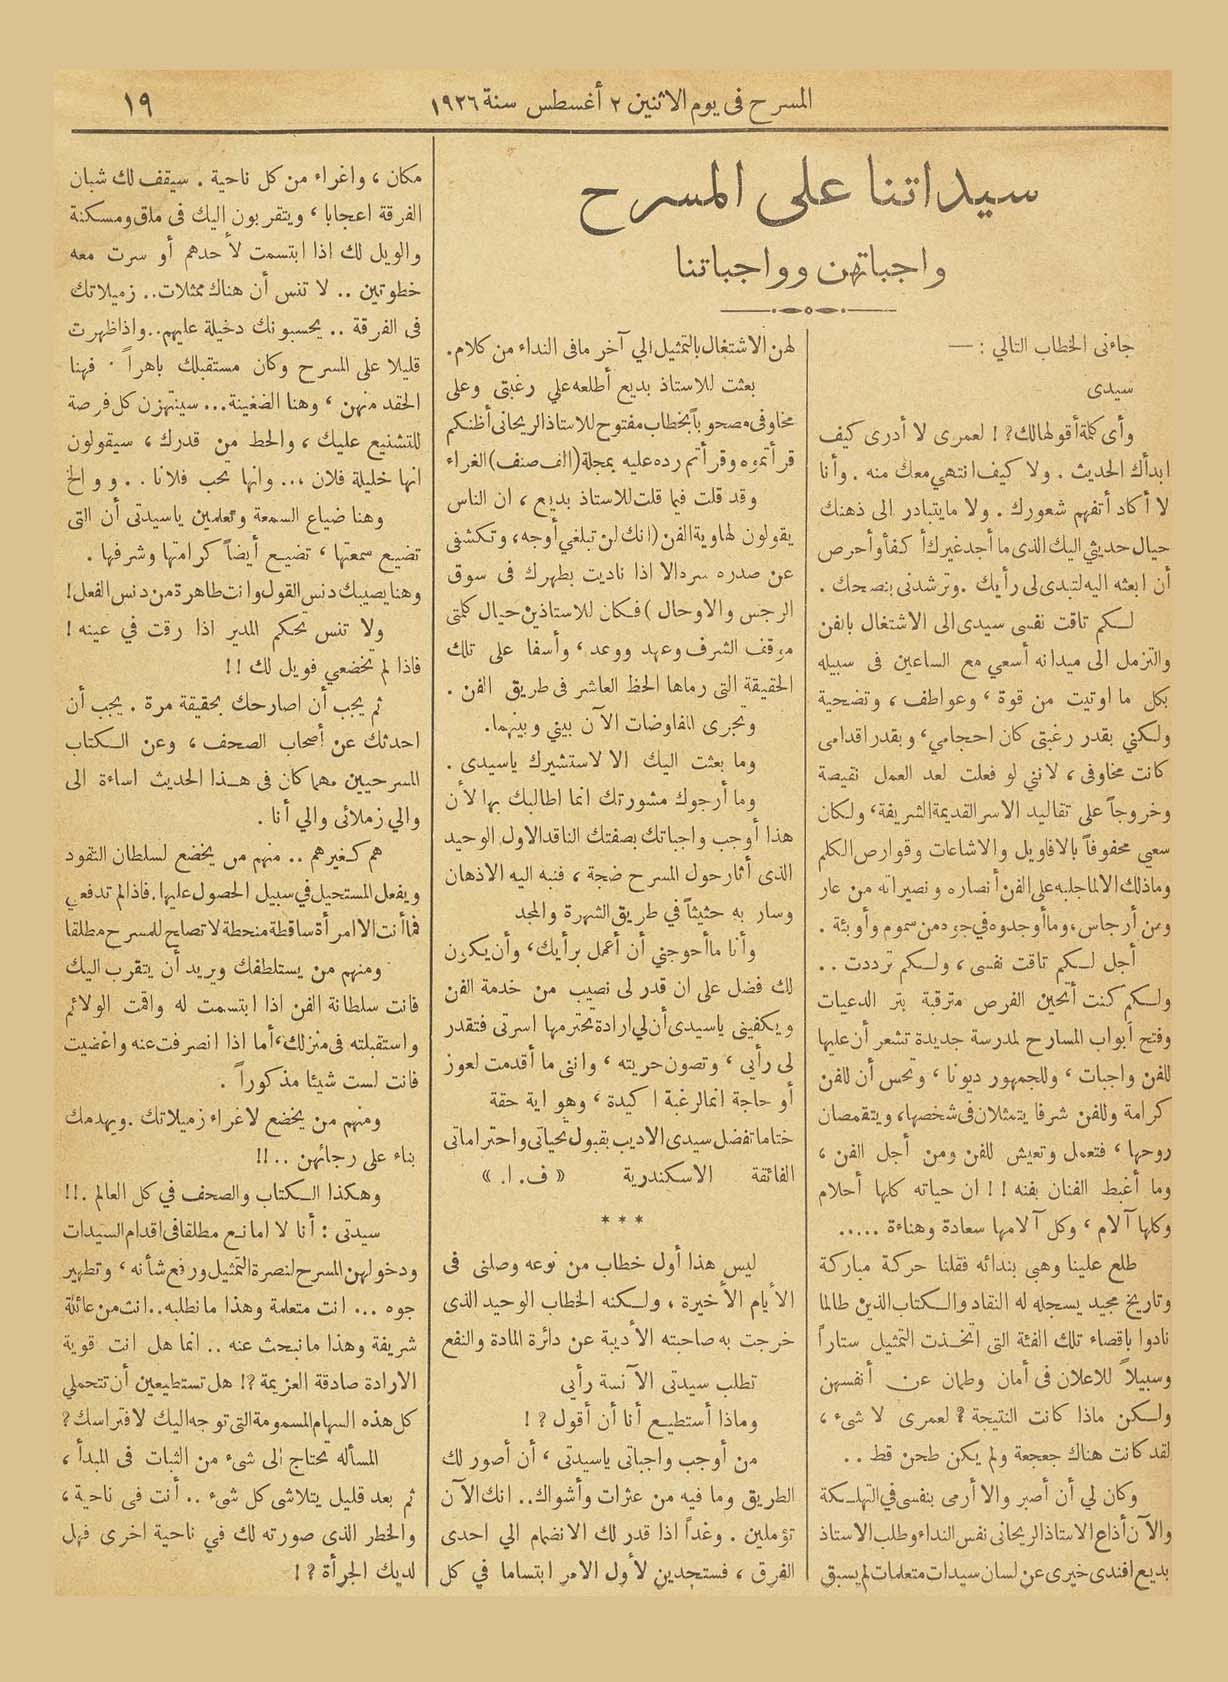 المسرح فى يوم الاثنين ٢ أغسطس سنة ١٩٢٦
١٩
سيداتنا على المسرح
واجباتهن وواجباتنا
جاءنى الخطاب التالي : —
سيدى
وأى كلمة أقولها لك ؟ ! لعمرى لا أدرى كيف
ابدأك الحديث . ولا كيف انتهي معك منه . وأنا
لا أكاد أتفهم شعورك . ولا ما يتبادر الى ذهنك
حيال حديثي اليك الذى ما أجد غيرك أ كفأ وأحرص
أن ابعثه اليه لتبدى لى رأيك . وترشدنى بنصحك .
لكم تاقت نفسى سيدى الى الاشتغال بالفن
والتزمل الى ميدانه أسعي مع الساعين فى سبيله
بكل ما اوتيت من قوة ، وعواطف ، وتضحية
ولكني بقدر رغبتى كان احجامي ، وبقدر اقدامى
كانت مخاوفى ، لانني لو فعلت لعد العمل نقيصة
وخروجاً على تقاليد الاسر القديمة الشريفة ، ولكان
سعي محفوفاً بالاقاويل والاشاعات وقوارص الكلم
وما ذلك الا لما جلبه على الفن أنصاره ونصيراته من عار
ومن أرجاس ، وما أوجدوه في جوه من سموم وأوبئة .
أجل لكم تاقت نفسى ، ولكم ترددت . .
ولكم كنت أتحين الفرص مترقبة بتر الدعيات
وفتح أبواب المسارح لمدرسة جديدة تشعر أن عليها
للفن واجبات ، وللجمهور ديونا ، وتحس أن للفن
كرامة وللفن شرفا يتمثلان فى شخصها ، ويتقمصان
روحها ، فتعمل وتعيش للفن ومن أجل الفن ،
وما أغبط الفنان بفنه ! ! ان حياته كلها أحلام
وكلها آلام ، وكل آلامها سعادة وهناءة .....
طلع علينا وهبى بندائه فقلنا حركة مباركة
وتاريخ مجيد يسجله له النقاد والكتاب الذين طالما
نادوا باقصاء تلك الفئة التى اتخذت التمثيل ستاراً
وسبيلاً للاعلان فى أمان وطمان عن أنفسهن
ولكن ماذا كانت النتيجة ؟ لعمرى لا شىء ،
لقد كانت هناك جعجعة ولم يكن طحن قط . .
وكان لي أن أصبر والا أرمى بنفسى في التهلكة
والآن أذاع الاستاذ الريحانى نفس النداء وطلب الاستاذ
بديع افندى خيرى عن لسان سيدات متعلمات لم يسبق
لهن الاشتغال بالتمثيل الي آخر ما فى النداء من كلام .
بعثت للاستاذ بديع أطلعه علي رغبتى وعلى
مخاوفى مصحوباً بخطاب مفتوح للاستاذ الريحانى أظنكم
قرأتموه وقرأتم رده عليه بمجلة ( الف صنف ) الغراء
وقد قلت فيما قلت للاستاذ بديع ، ان الناس
يقولون لهاوية الفن ( انك لن تبلغي أوجه ، وتكشفى
عن صدره سره الا اذا ناديت بطهرك فى سوق
الرجس والاوحال ) فكان للاستاذين حيال كلمتى
موقف الشرف وعهد ووعد ، وأسفا على تلك
الحقيقة التى رماها الحظ العاثر فى طريق الفن .
وتجرى المفاوضات الآن بيني وبينهما .
وما بعثت اليك الا لاستشيرك ياسيدى .
وما أرجوك مشورتك انما اطالبك بها لأن
هذا أوجب واجباتك بصفتك الناقد الاول الوحيد
الذى أثار حول المسرح ضجة ، فنبه اليه الاذهان
وسار به حثيثاً في طريق الشهرة والمجد
وأنا ما أحوجني أن أعمل برأيك ، وأن يكون
لك فضل على ان قدر لى نصيب من خدمة الفن
ويكفيني ياسيدى أن لي ارادة تحترمها اسرتى فتقدر
لى رأيى ، وتصون حريته ، وانى ما أقدمت لعوز
أو حاجة انما لرغبة ا كيدة ، وهواية حقة
ختاما تفضل سيدى الاديب بقبول تحياتى واحتراماتى
الفائقة الاسكندرية « ف . ا . »
* * *
ليس هذا أول خطاب من نوعه وصلنى فى
الأيام الأخيرة ، ولكنه الخطاب الوحيد الذى
خرجت به صاحبته الأديبة عن دائرة المادة والنفع
تطلب سيدتى الآنسة رأيي
وماذا أستطيع أنا أن أقول ؟ !
من أوجب واجباتى ياسيدتى ، أن أصور لك
الطريق وما فيه من عثرات وأشواك . . انك الآن
تؤملين . وغداً اذا قدر لك الانضمام الي احدى
الفرق ، فستجدين لأول الامر ابتساما في كل
مكان ، واغراء من كل ناحية . سيقف لك شبان
الفرقة اعجابا ، ويتقربون اليك فى ملق ومسكنة
والويل لك اذا ابتسمت لأحدهم أو سرت معه
خطوتين . . لا تنس أن هناك ممثلات . . زميلاتك
فى الفرقة . . يحسبونك دخيلة عليهم . . واذا ظهرت
قليلا على المسرح وكان مستقبلك باهراً . فهنا
الحقد منهن ، وهنا الضغينة ... سينتهزن كل فرصة
للتشنيع عليك ، والحط من قدرك ، سيقولون
انها خليلة فلان ،.. وانها تحب فلانا . . و و الخ
وهنا ضياع السمعة وتعلمين ياسيدتى أن التى
تضيع سمعتها ، تضيع أيضاً كرامتها وشرفها .
وهنا يصيبك دنس القول وانت طاهرة من دنس الفعل !
ولا تنس تحكم المدير اذا رقت في عينه !
فاذا لم تخضعي فويل لك !!
ثم يجب أن اصارحك بحقيقة مرة . يجب أن
احدثك عن أصحاب الصحف ، وعن الكتاب
المسرحيين مهما كان فى هذا الحديث اساءة الى
والي زملائى والي أنا .
هم كغيرهم . . منهم من يخضع لسلطان النقود
ويفعل المستحيل في سبيل الحصول عليها . فاذا لم تدفعي
فما أنت الا امرأة ساقطة منحطة لا تصلح للمسرح مطلقا
ومنهم من يستلطفك ويريد أن يتقرب اليك
فانت سلطانة الفن اذا ابتسمت له واقت الولائم
واستقبلته فى منزلك ، أما اذا انصرفت عنه واغضيت
فانت لست شيئا مذكوراً .
ومنهم من يخضع لاغراء زميلاتك . ويهدمك
بناء على رجائهن ..!!
وهكذا الكتاب والصحف في كل العالم .!!
سيدتى : أنا لا امانع مطلقا فى اقدام السيدات
ودخولهن المسرح لنصرة التمثيل ورفع شأنه ، وتطهير
جوه ... انت متعلمة وهذا ما نطلبه . . انت من عائلة
شريفة وهذا ما نبحث عنه . . انما هل انت قوية
الارادة صادقة العزيمة ؟! هل تستطيعين أن تتحملي
كل هذه السهام المسمومة التى توجه اليك لافتراسك ؟
المسأله تحتاج الى شىء من الثبات فى المبدأ ،
ثم بعد قليل يتلاشى كل شىء . . أنت فى ناحية ،
والخطر الذى صورته لك في ناحية اخرى فهل
لديك الجرأة ؟ !